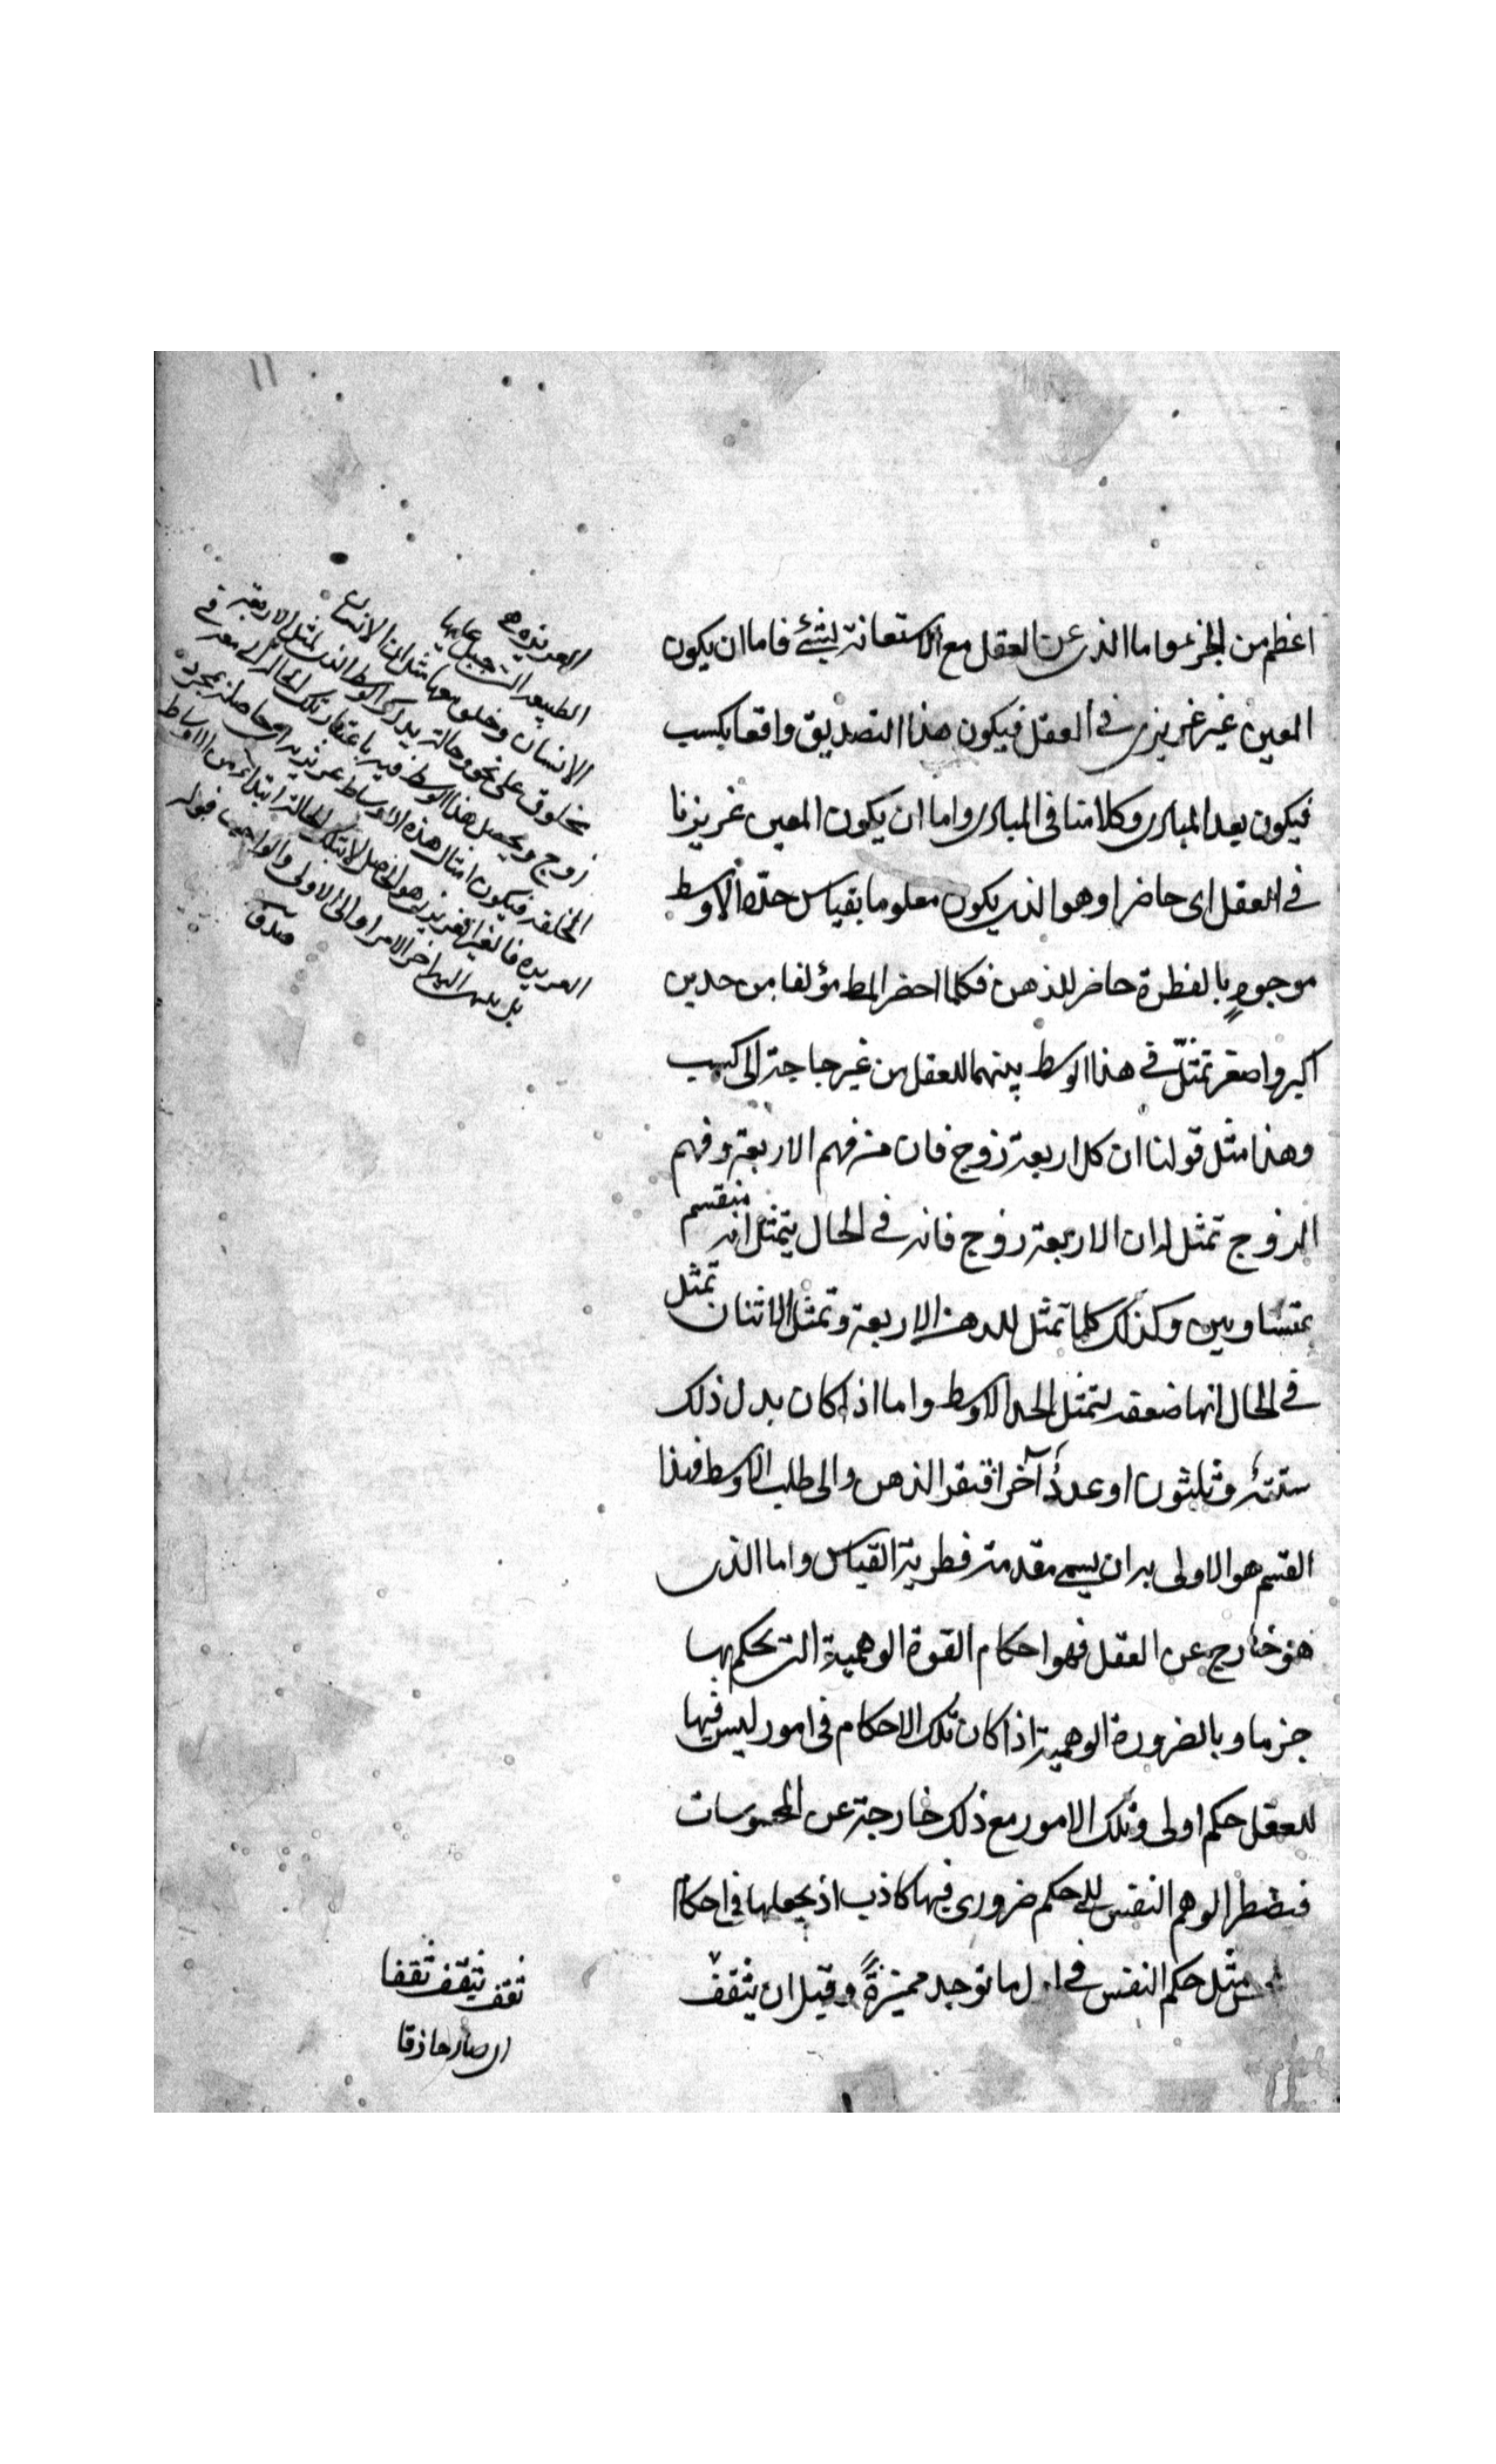 ١١
اعظم من الجزء واما الذى عن العقل مع الاستعانة بشئ فاما ان يكون
المعين غير غريزى فى العقل فيكون هذا التصديق واقعا بكسب
فيكون بعد المبادى وكلامنا فى المبادى واما ان يكون المعين غريزيا
فى العقل اى حاضرا وهو الذى يكون معلوما بقياس حده الاوسط
موجود بالفطرة حاضر للذهن فكلما احضر المط مؤلفا من حدين
اكبر واصغر تمثل فى هذا الوسط بينهما للعقل من غير حاجة الى كسب
وهذا مثل قولنا ان كل اربعة زوج فان من فهم الاربعة وفهم
الزوج تمثل له ان الاربعة زوج فانه فى الحال يتمثل انه منقسم
بمتساويين وكذلك كلما تمثل للذهن الاربعة وتمثل الاثنان تمثل
فى الحال انها ضعفه لتمثل الحد الاوسط واما اذا كان بدل ذلك
ستة وثلثون او عدد آخر افتقر الذهن والى طلب الاوسط فهذا
القسم هو الاولى به ان يسمى مقدمة فطرية القياس واما الذى
هو خارج عن العقل فهو احكام القوة الوهمية التى يحكم بها
جزما وبالضرورة الوهمية اذا كان تلك الاحكام فى امور ليس فيها
للعقل حكم اولى وتلك الامور مع ذلك خارجة عن المحسوسات
فيضطر الوهم النفس الى حكم ضرورى فيها كاذب اذ يجعلها فى احكام
مثل حكم النفس فى اول ما توجد مميزة وقبل ان يثقف
الغريزة هى
الطبيعة التى جبل عليها
الانسان وخلق معها مثل ان الانسان
مخلوق على نحو وحالة يدرك الوسط الذى لمثل الاربعة
زوج ويحصل هذا الوسط فيه باعتبار تلك الحالة
الخلقة فيكون امثال هذه الاوساط غريزية اى حاصلة بمجرد
الغريزة فالغير الغريزى هو الحاصل لا بتلك الحالة ابتداء من الاوساط
بل اخر الامر او الى الاولى والواجب قوله
ثقف يثقف ثقفا
اى صار حاذقا